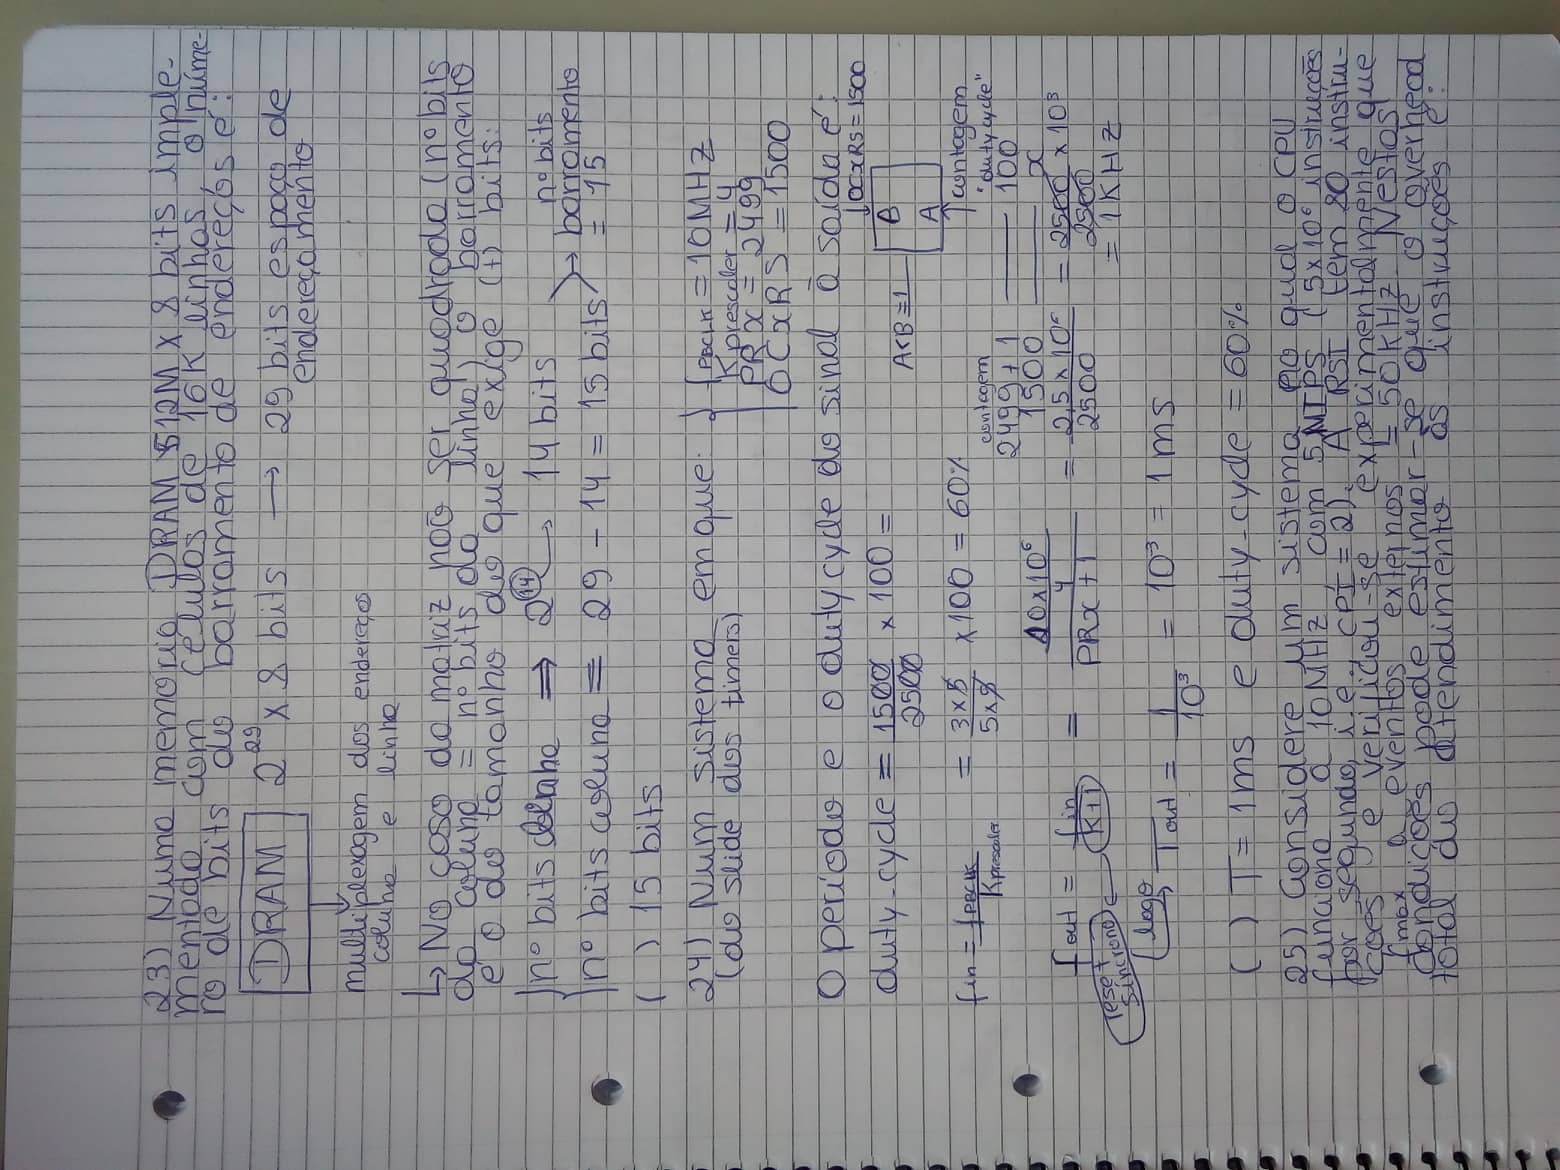 23) Numa memória DRAM 512M x 8 bits imple-
mentada com células de 16K linhas, o núme-
ro de bits do barramento de endereços é:
DRAM 2^29 x 8 bits → 29 bits espaço de
endereçamento
multiplexagem dos endereços
coluna e linha
↳ No caso da matriz não ser quadrada (nº bits
da coluna = nº bits da linha) o barramento
é o do tamanho do que exige (+) bits:
nº bits linha ⇒ 2^14 → 14 bits
nº bits coluna = 29 - 14 = 15 bits
nº bits
barramento
= 15
( ) 15 bits
24) Num sistema em que: fPBCLK = 10MHZ
(do slide dos timers) Kprescaler = 4
PRx = 2499
OCxRS = 1500
O período e o duty cycle do sinal à saída é:
↓OCxRS = 1500
duty-cycle = 1500/2500 x 100 =
A<B = 1
B
A
↑contagem
fin = fPBCLK/Kprescaler
= 3x5/5x5 x 100 = 60%
contagem "duty cycle"
2499 + 1 —— 100
1500 —— x
fout = fin/K+1 = 10x10^6/4/PRx + 1 = 2,5 x 10^6/2500 = 2500/2500 x 10^3
= 1KHZ
reset
síncrono
logo
Tout = 1/10^3 = 10^3 = 1 ms
( ) T = 1ms e duty-cycle = 60%
25) Considere um sistema no qual o CPU
funciona a 10MHZ, com 5 MIPS (5x10^6 instruções
por segundo, i.e., CPI = 2). A RSI tem 20 instru-
ções e verificou-se experimentalmente que
fmax a eventos externos = 50KHZ. Nestas
condições pode estimar-se que o overhead
total do atendimento às instruções é: